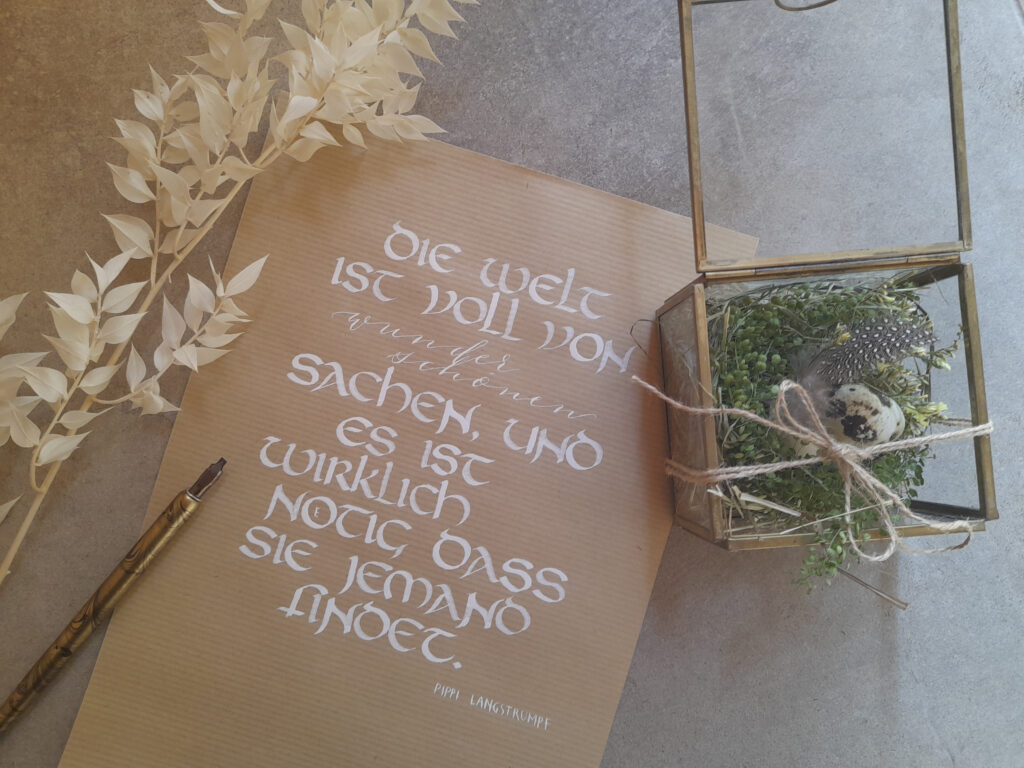 DIE WELT
IST VOLL VON
wunder
schönen
SACHEN, UND
ES IST
WIRKLICH
NÖTIG, DASS
SIE JEMAND
FINDET.
PIPPI LANGSTRUMPF